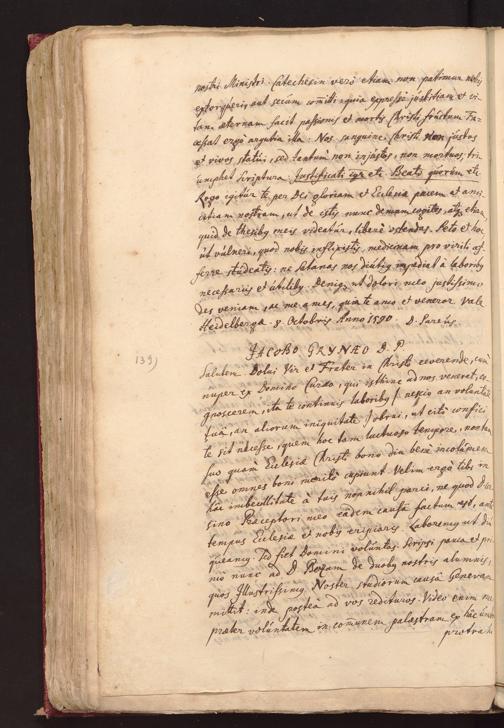 nostri Ministri. Catechesin verò etiam non patimur nobis
extorqueri, aut secum committi, quia expressè justitiam et vi-
tam æternam facit passionis et mortis Christi fructum. Fa-
cessat ergo argutia illa: Nos sanguine Christi non justos
et vivos statui, sed tantum non injustos, non mortuos; tri-
umphet Scriptura: Justificati igitur etc. Beati quorum etc.
Rogo igitur te per Dei gloriam et Ecclesiæ pacem et ami-
citiam nostram, ut de istis nunc demum cogites, atque etiam
quid de thesibus meis videatur, liberè ostendas. Peto et hoc
ut vulneri, quod nobis inflixistis, medicinam pro virili af-
ferre studeatis: ne Satanas nos diutius impediat à laboribus
necessariis et utilibus. Denique ut dolori meo justissimo
des veniam, ac me ames, quia te amo et veneror. Vale
Heidelbergæ 8 Octobris Anno 1590. D. Pareus
139)
JACOBO GRYNÆO D. P.
Salutem. Dolui Vir et Frater in Christo reverende, cum
nuper ex Domino Curæo, qui isthinc ad nos venerat, co-
gnoscerem, ita te continuis laboribus / nescio an voluntate
tua, an aliorum iniquitate / obrui, ut citò confici
te sit necesse, quem hoc tam luctuoso tempore, non tam
suo quam Ecclesiæ Christi bono diu bene incolumem
esse omnes boni meritò cupiunt. Velim ergò tibi in
hac imbecillitate à tuis nonnihil parci, ne quod
sino Præceptori meo eadem causa factum est, ante
tempus Ecclesiæ et nobis eripiaris. Laboremus ut
queamus. Sed fiet Domini voluntas. Scripsi pauca
nunc ad D. Bezam de duobus nostris alumnis,
quos Illustrissimus Noster studiorum causâ Genevam
mittit: inde postea ad vos redituros. Video enim me
præter voluntatem in communem palæstram ex hac
protrahi